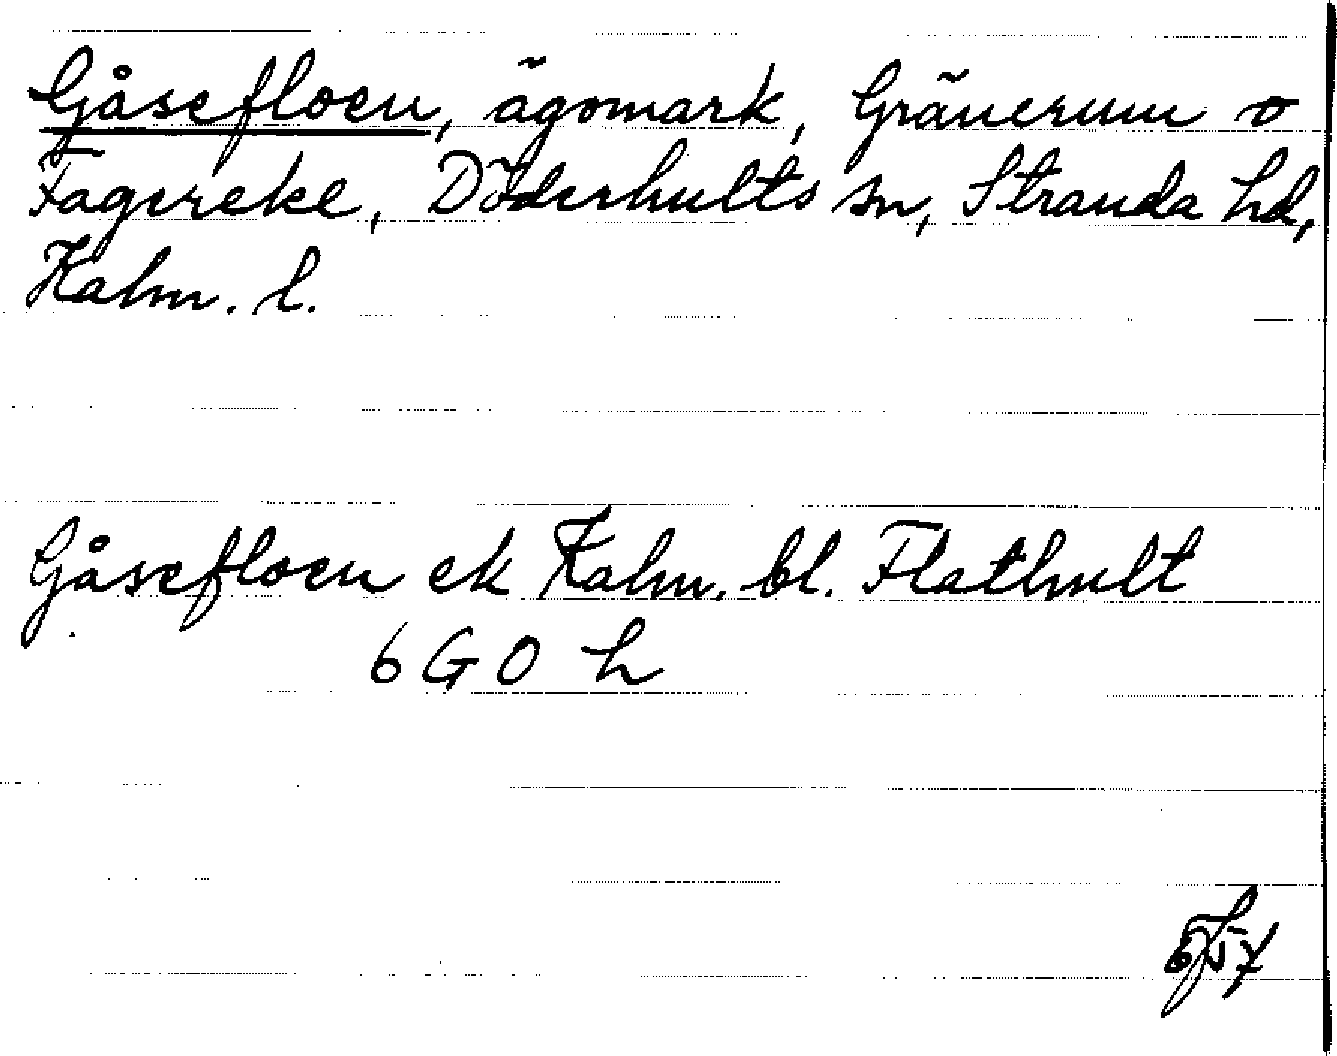 Gåsefloen, ägomark, Gränerum o
Fagereke, Döderhults sn, Stranda hd,
Kalm. l.
Gåsefloen ek Kalm. bl. Flathult
6 G O h